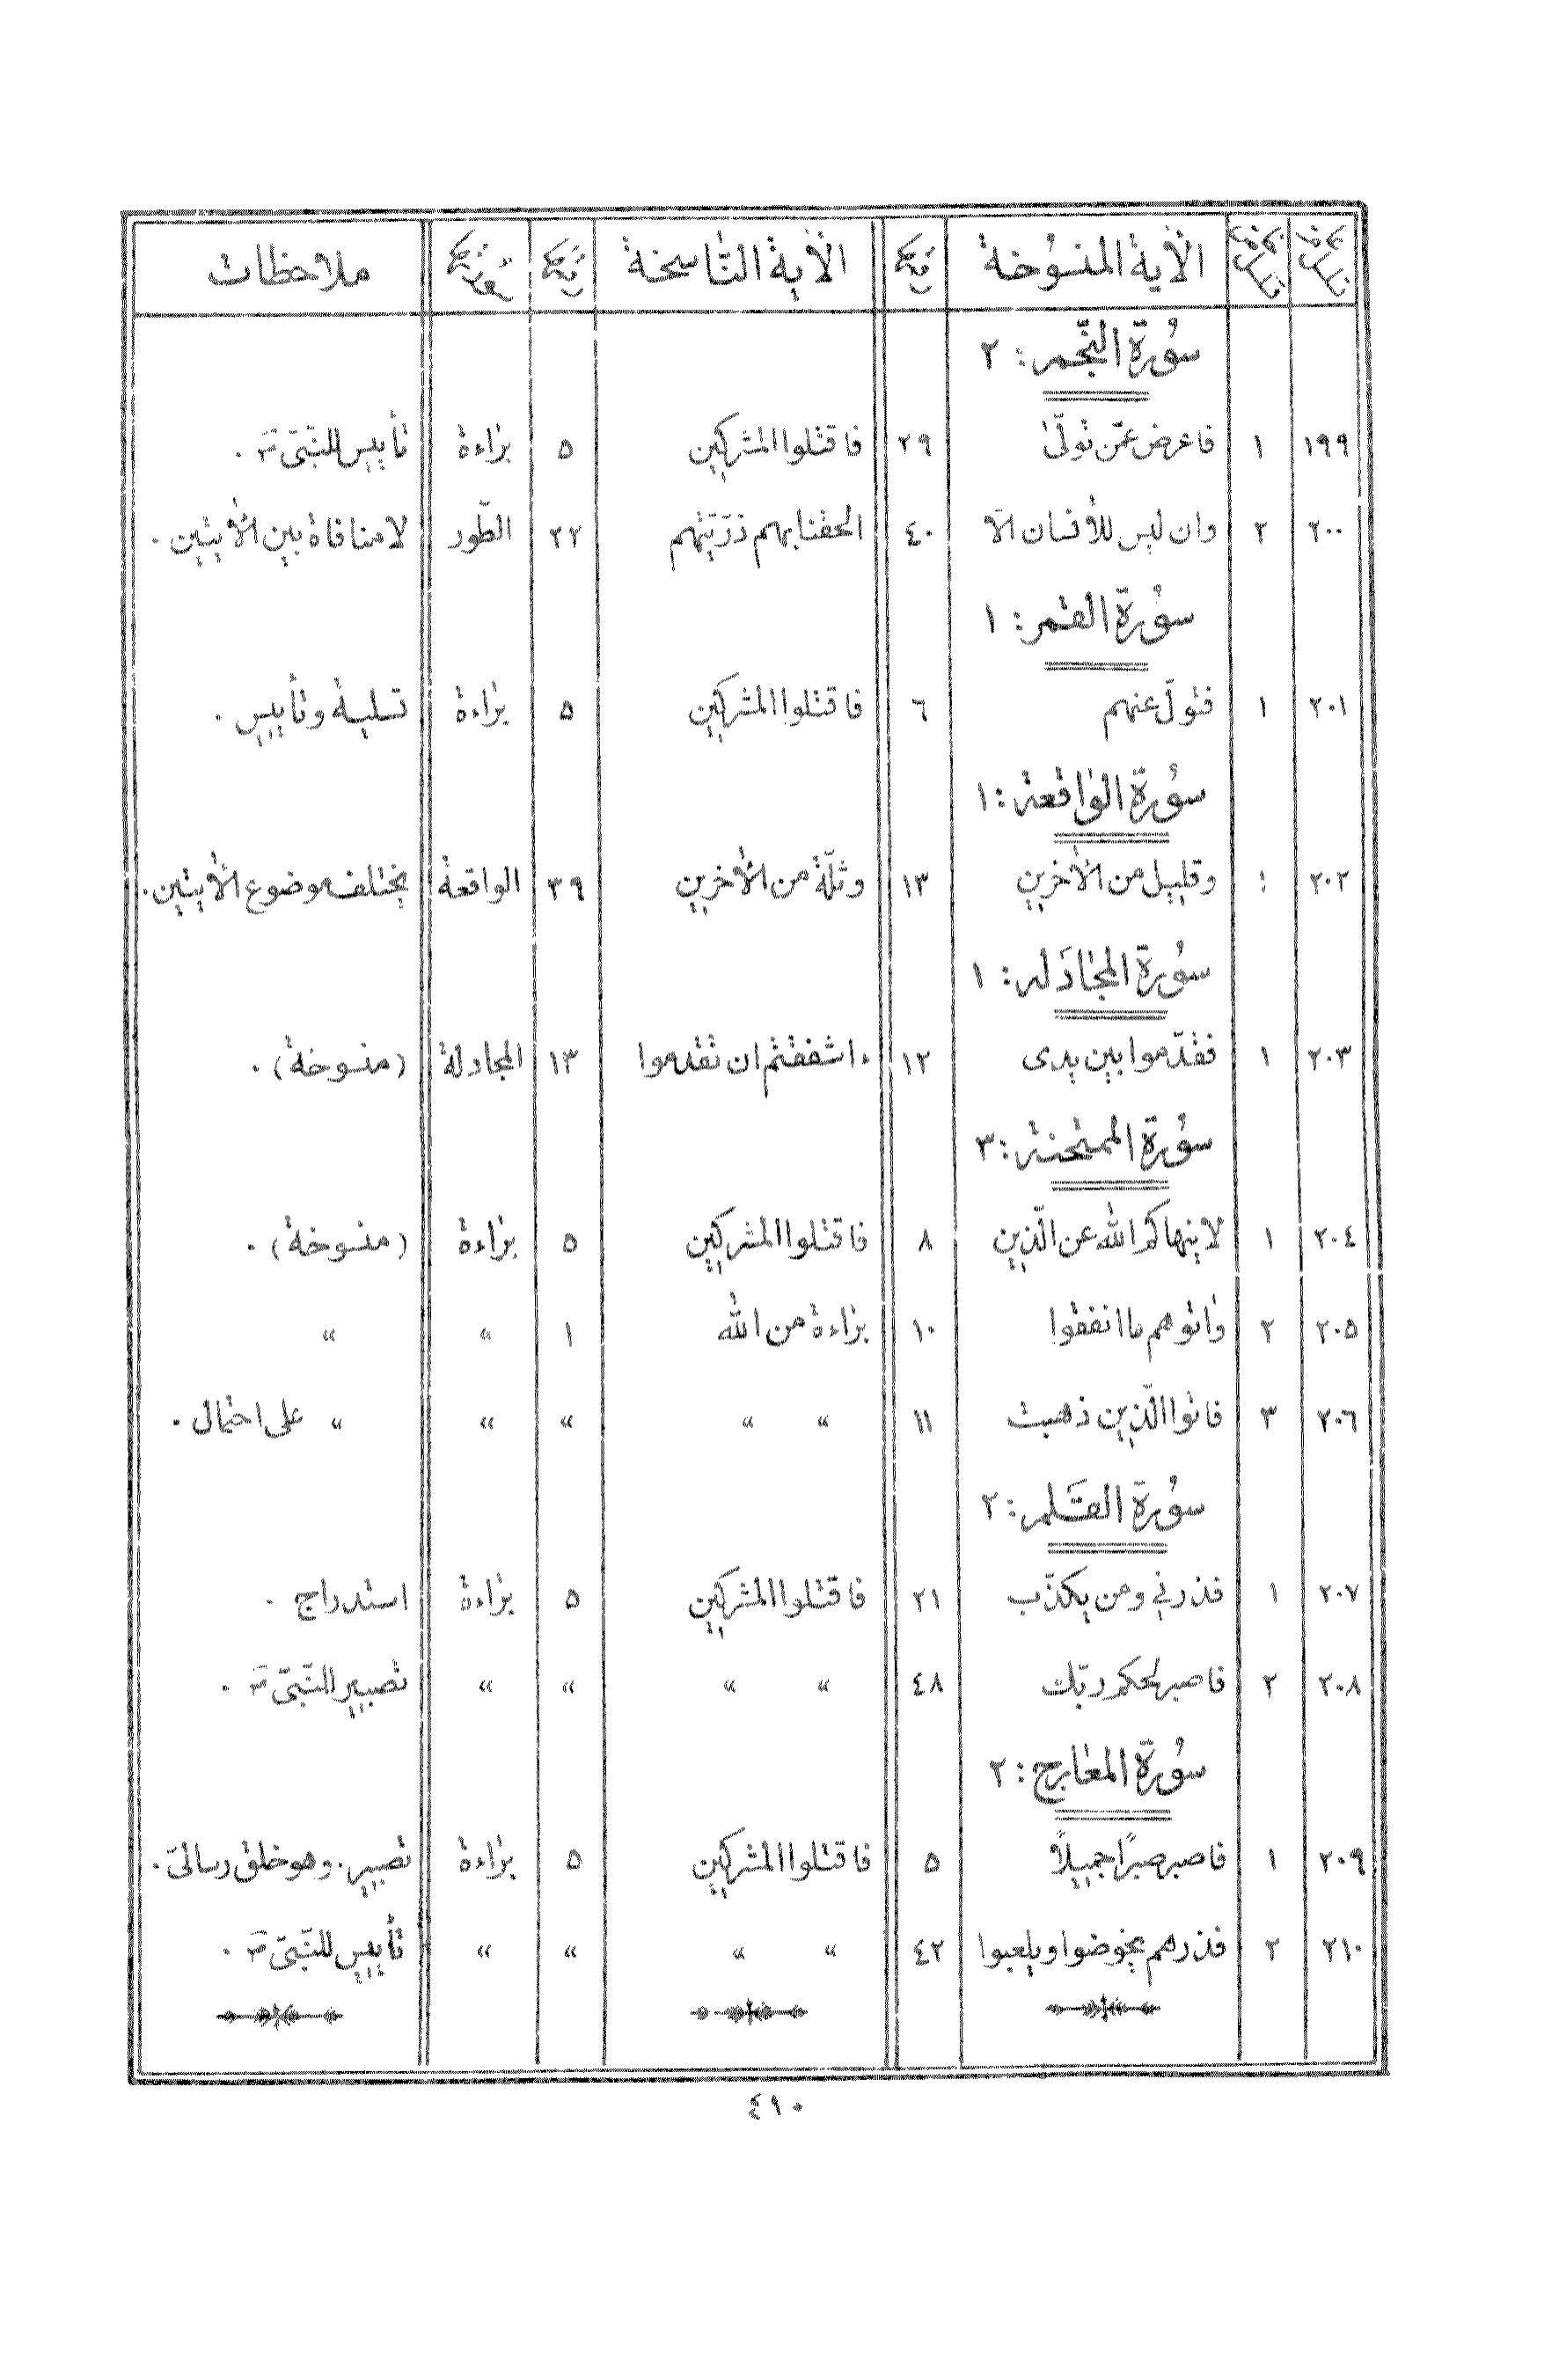 الآية المنسوخة رقمها الآية الناسخة رقمها ملاحظات
سورة النجم: ٢
١٩٩ ١ فاعرض عمّن تولّى ٢٩ فاقتلوا المشركين ٥ براءة تأييس للنبيّ ﷺ .
٢٠٠ ٢ وان ليس للأنسان الّا ٤٠ الحقنا بهم ذرّيّتهم ٢٢ الطّور لا منافاة بين الأيتين .
سورة القمر: ١
٢٠١ ١ فتولّ عنهم ٦ فاقتلوا المشركين ٥ براءة تسلية وتأييس .
سورة الواقعة: ١
٢٠٢ ١ وقليل من الأخرين ١٣ وثلّة من الأخرين ٣٩ الواقعة يختلف موضوع الأيتين .
سورة المجادلة: ١
٢٠٣ ١ فقدّموا بين يدى ١٢ ءاشفقتم ان تقدموا ١٣ المجادلة (منسوخة) .
سورة الممتحنة: ٣
٢٠٤ ١ لا ينهاكم الله عن الّذين ٨ فاقتلوا المشركين ٥ براءة (منسوخة) .
٢٠٥ ٢ واتوهم ما انفقوا ١٠ براءة من الله ١ " "
٢٠٦ ٣ فاتوا الّذين ذهبت ١١ " " " " " على احتمال .
سورة القلم: ٢
٢٠٧ ١ فذرني ومن يكذّب ٢١ فاقتلوا المشركين ٥ براءة استدراج .
٢٠٨ ٢ فاصبر لحكم ربّك ٤٨ " " " " تصبير للنّبيّ ﷺ .
سورة المعارج: ٢
٢٠٩ ١ فاصبر صبرًا جميلًا ٥ فاقتلوا المشركين ٥ براءة تصبير. وهو خلق رساليّ .
٢١٠ ٢ فذرهم يخوضوا ويلعبوا ٤٢ " " " " تأييس للنّبيّ ﷺ .
٤١٠